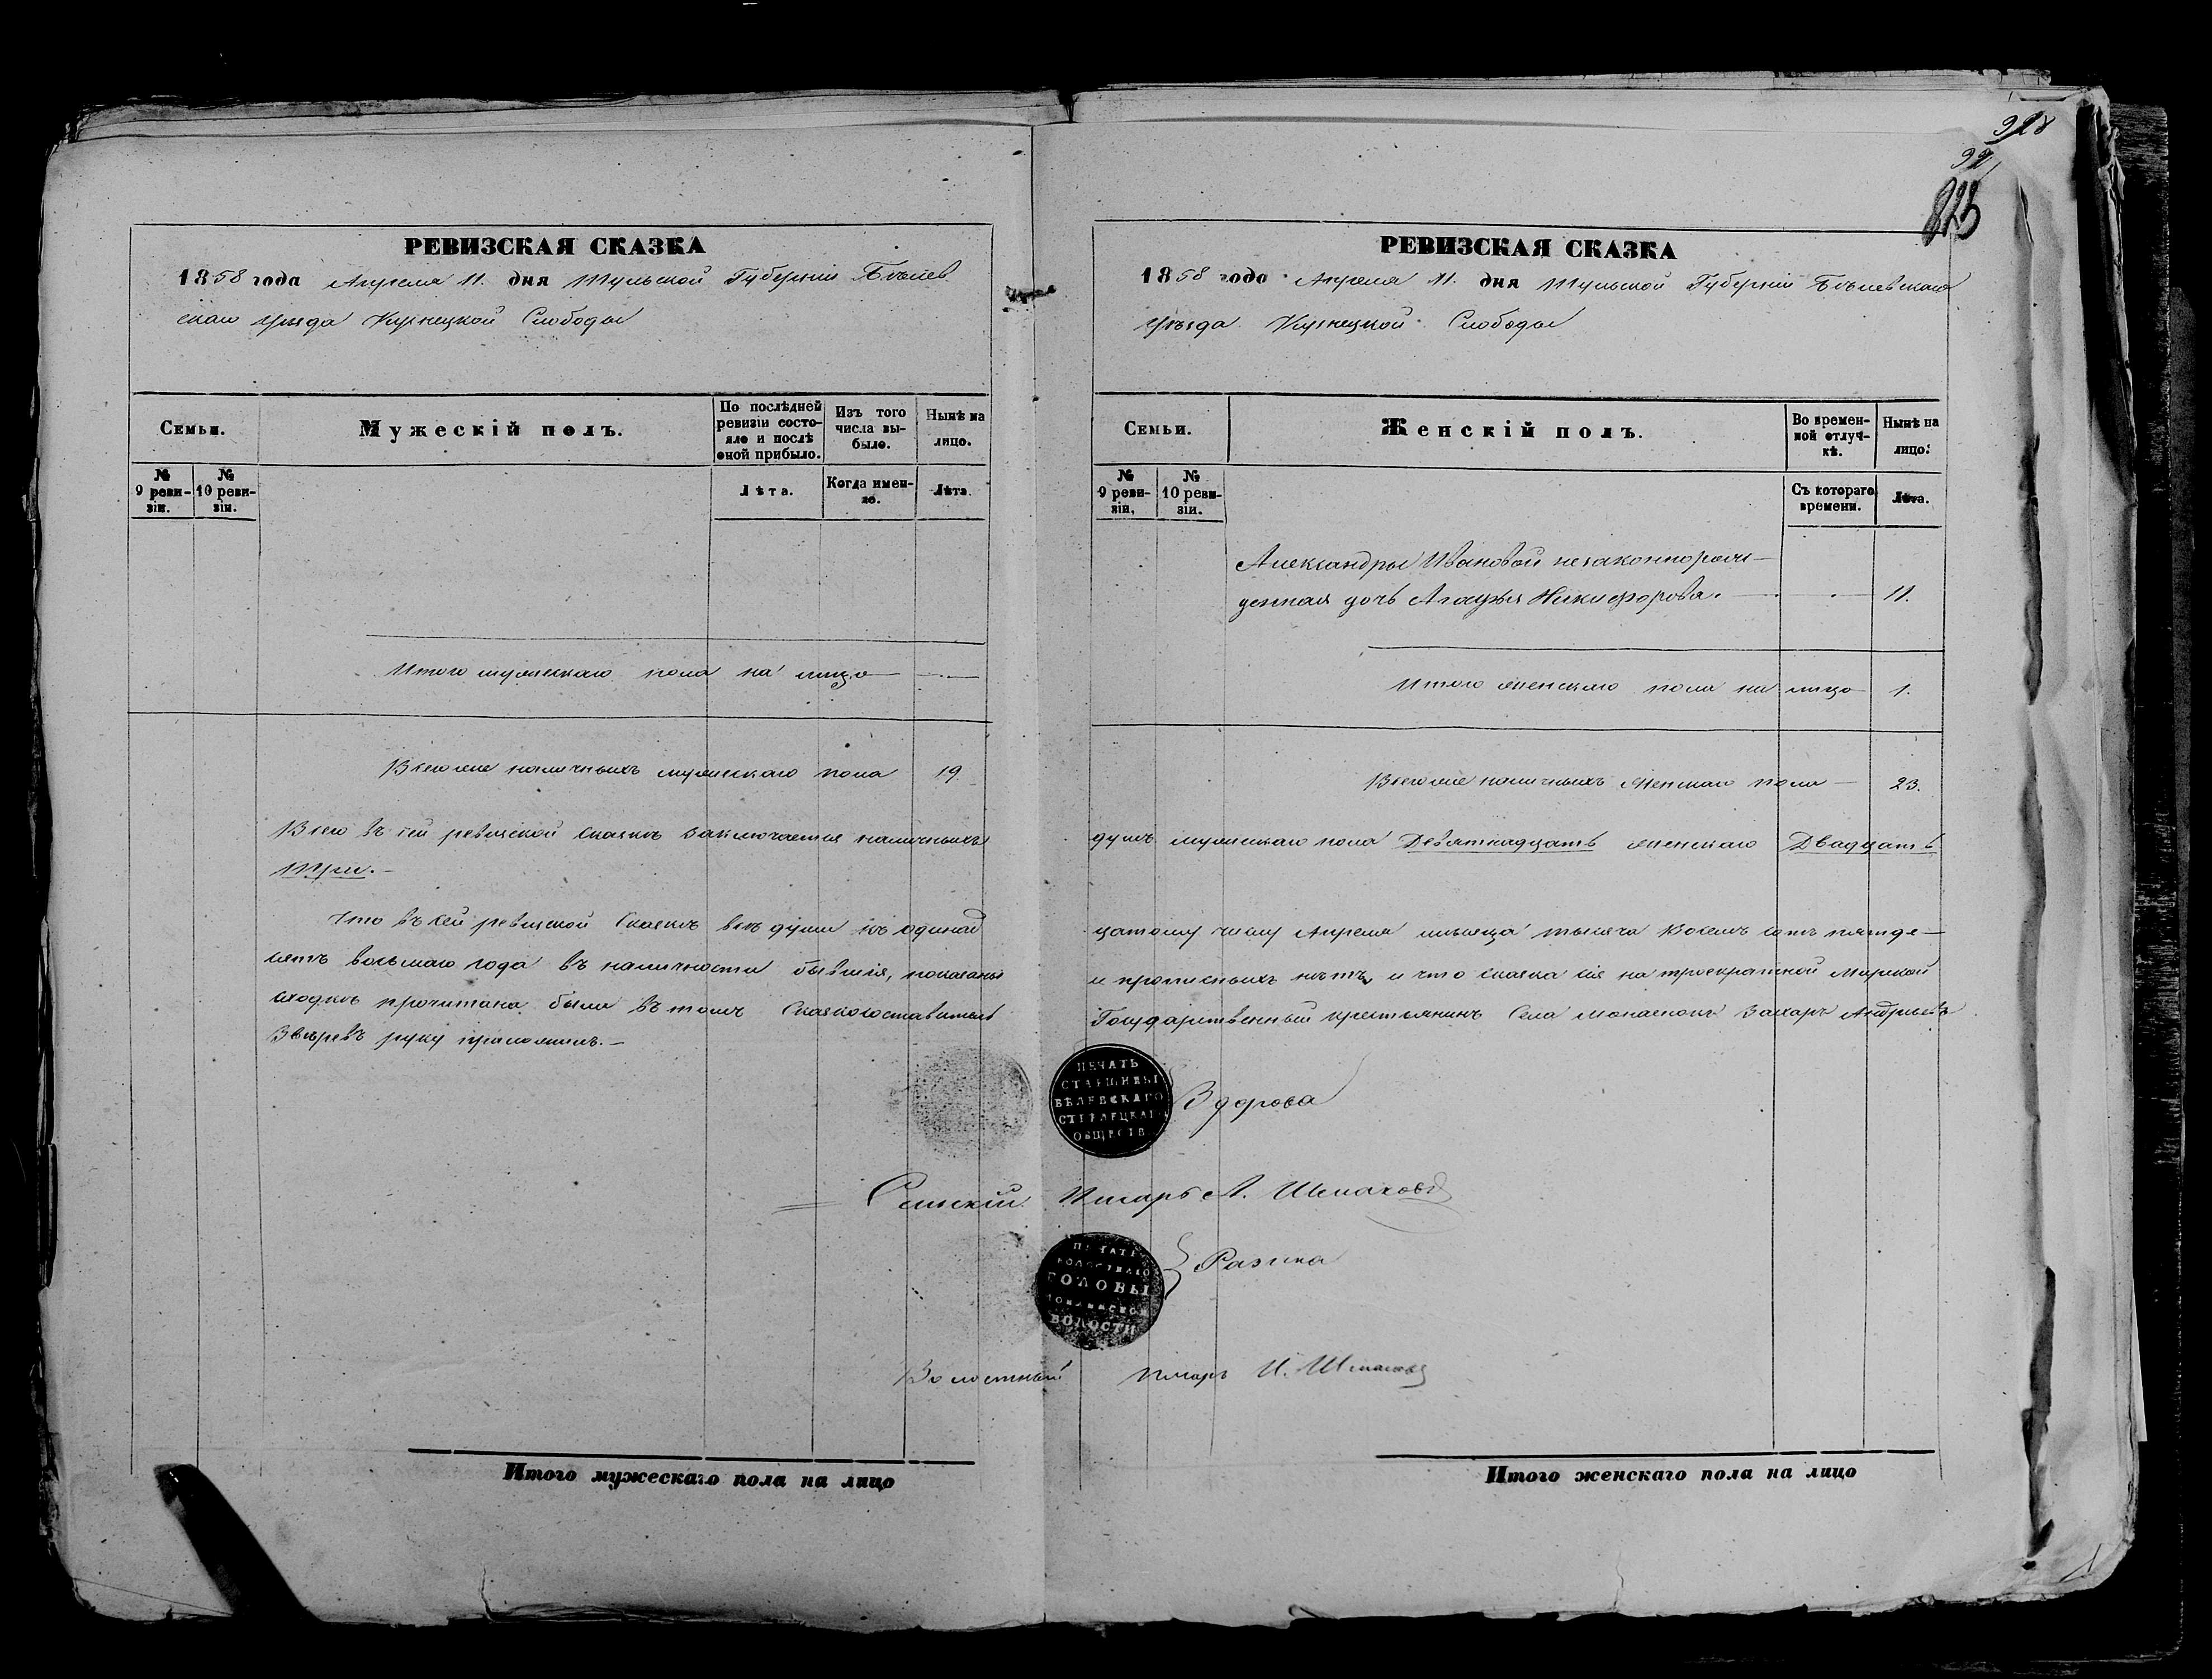 928
99
РЕВИЗСКАЯ СКАЗКА
1858 года Апреля 11. дня Тульской Губерніи Бѣлев
скаго уѣзда Кузнецкой Слободы
Семьи.
Мужескій полъ.
По послѣдней ревизіи состо-
яло и послѣ
оной прибыло.
Изъ того
числа вы-
было.
Нынѣ на
лицо.
№
9 реви-
зіи.
№
10 реви-
зіи.
Лѣта.
Когда имен-
но.
Лѣта.
Итого мужескаго пола на лицо —
Всего же наличныхъ мужескаго пола 19
Всего въ сей ревизской сказкѣ заключается наличныхъ
три.—
Что въ сей ревизской сказкѣ всѣ души къ одинад
сятъ восьмаго года въ наличности бывшія, показаны
сходкѣ прочитана была въ томъ Сказкосоставитель
Звѣревъ руку приложилъ.—
Сельскій
Волостный
Итого мужескаго пола на лицо
РЕВИЗСКАЯ СКАЗКА
1858 года Апреля 11. дня Тульской Губерніи Бѣлевскаго
уѣзда Кузнецкой Слободы
Семьи.
Женскій полъ.
Во времен-
ной отлуч-
кѣ.
Нынѣ на
лицо.
№
9 реви-
зіи.
№
10 реви-
зіи.
Съ котораго
времени.
Лѣта.
Александры Ивановой незаконнорож-
денная дочь Агафья Никифорова. 11.
Итого женскаго пола на лицо 1.
Всего же наличныхъ женскаго пола — 23.
душъ мужескаго пола Девятнадцать женскаго Двадцать
цатому числу Апреля мѣсяца тысяча восемь сотъ пятьде—
и прописныхъ нѣтъ, и что сказка сія на троекратной Мирской
Государственный крестьянинъ Села Захаръ Андреевъ
ПЕЧАТЬ
СТАРШИНЫ
БѢЛЕВСКАГО
СТРѢЛЕЦКАГО
ОБЩЕСТВ
писарь А. Шемаховъ
ПЕЧАТЬ
ВОЛОСТНАГО
ГОЛОВЫ
ВОЛОСТИ
Разина
писарь И.
Итого женскаго пола на лицо